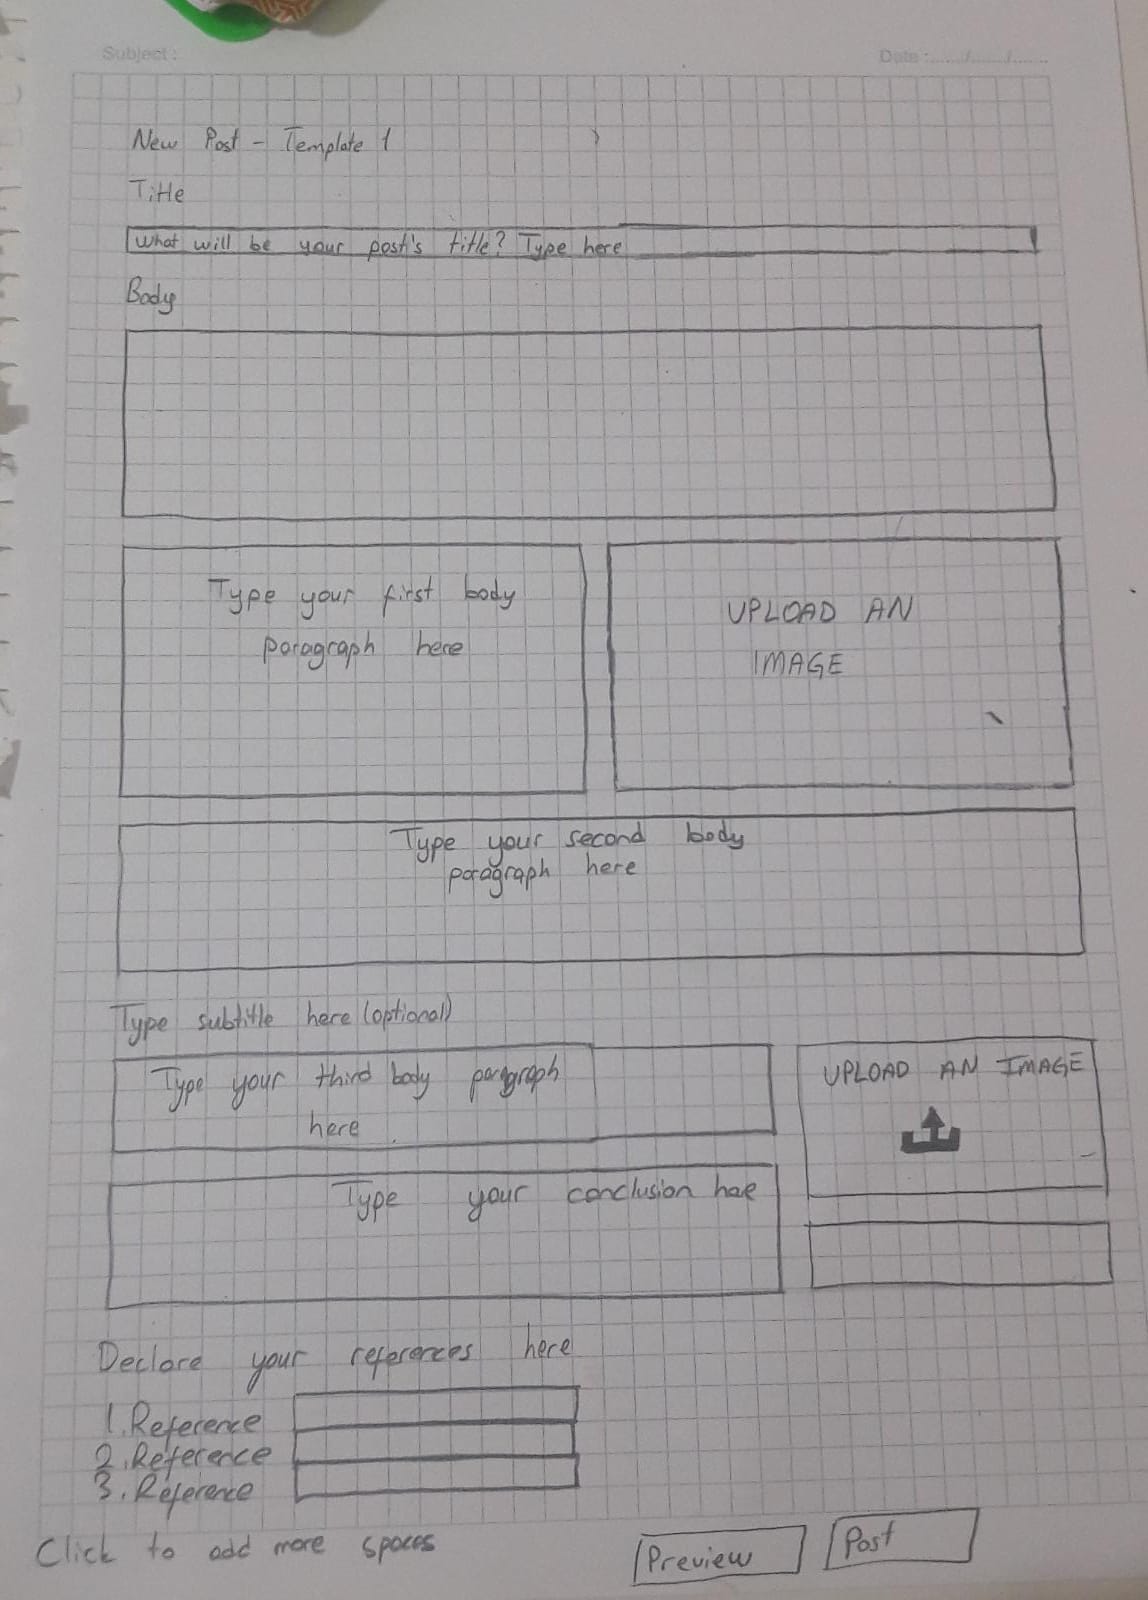 Subject :
Date :....../......./.......
New Post - Template 1
Title
What will be your post's title? Type here
Body
Type your first body
paragraph here
UPLOAD AN
IMAGE
Type your second body
paragraph here
Type subtitle here (optional)
Type your third body paragraph
here
UPLOAD AN IMAGE
Type your conclusion hae
Declare your references here
1. Reference
2. Reference
3. Reference
Click to add more spaces
Preview
Post